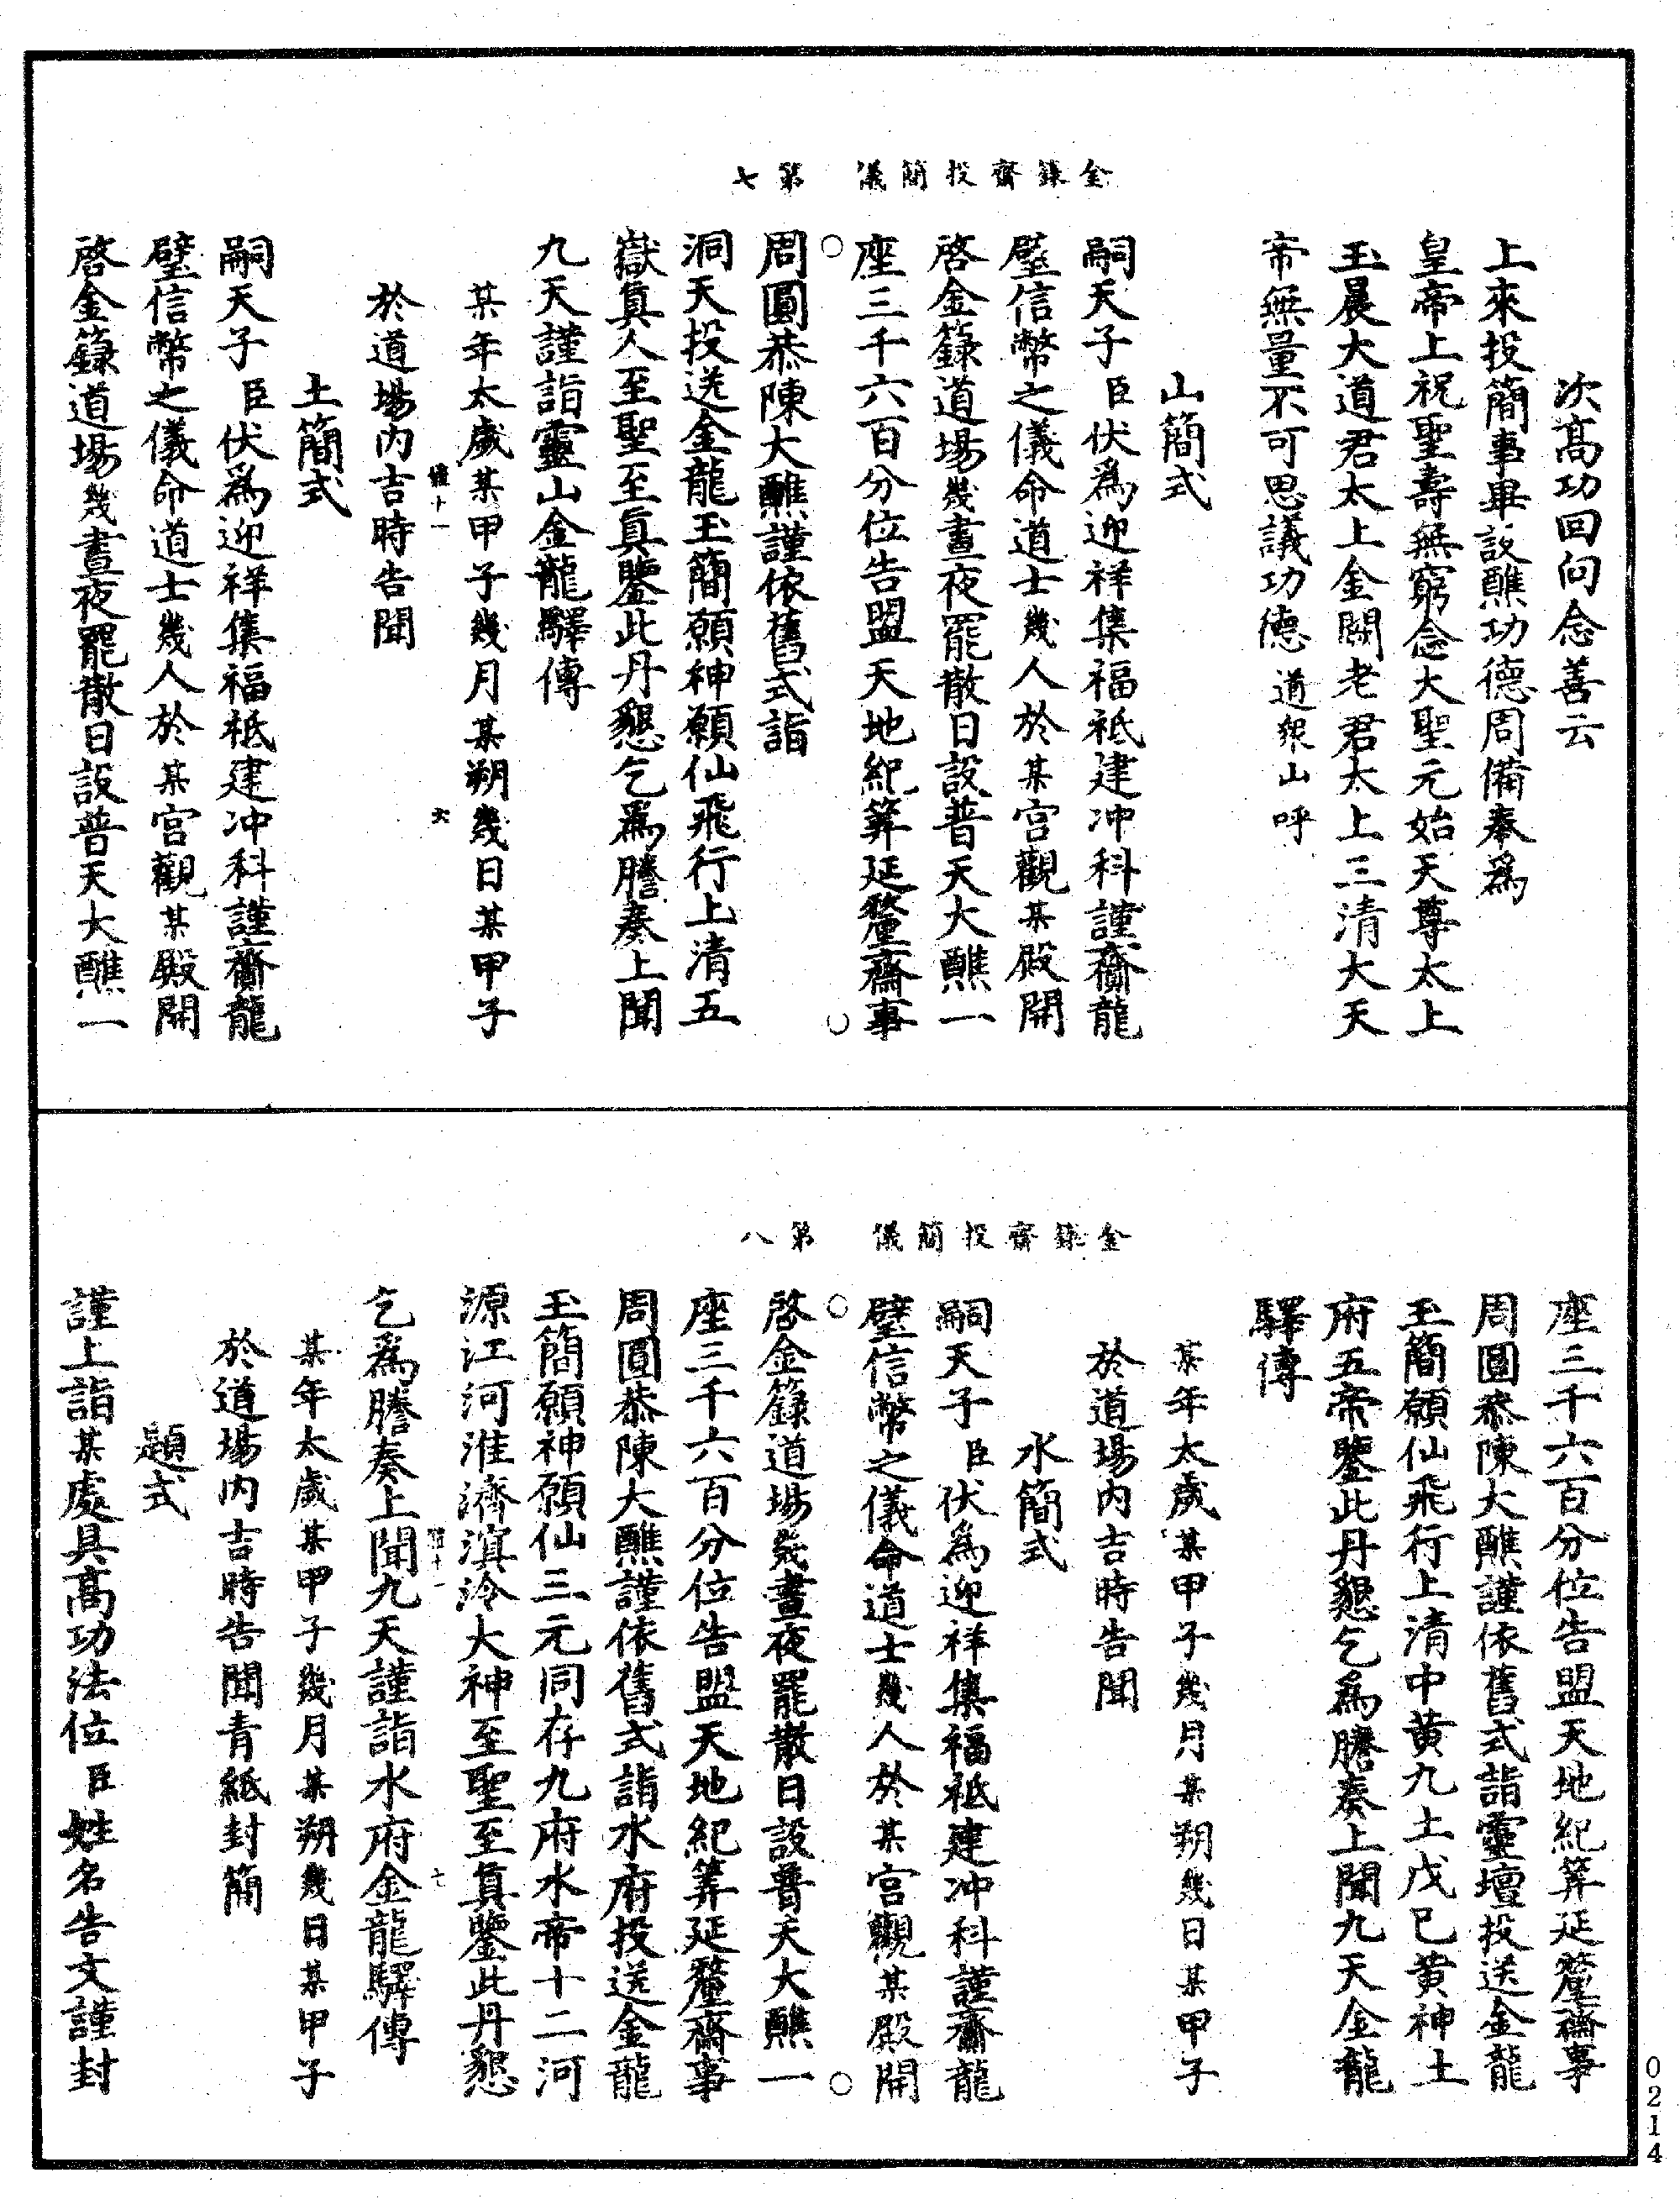 金籙齋投簡儀　第七
次高功回向念善云
上來投簡事畢設醮功德周備奉爲
皇帝上祝聖壽無窮念大聖元始天尊太上
玉晨大道君太上金闕老君太上三清大天
帝無量不可思議功德道衆山呼
山簡式
嗣天子臣伏爲迎祥集福祗建冲科謹齎龍
璧信幣之儀命道士幾人於某宮觀某殿開
啓金籙道場幾晝夜罷散日設普天大醮一
座三千六百分位告盟天地紀筭延釐齋事
周圓恭陳大醮謹依舊式詣
洞天投送金龍玉簡願神願仙飛行上清五
嶽真人至聖至真鑒此丹懇乞爲騰奏上聞
九天謹詣靈山金龍驛傳
某年太歲某甲子幾月某朔幾日某甲子
於道場内吉時告聞
六
土簡式
嗣天子臣伏爲迎祥集福祗建冲科謹齎龍
璧信幣之儀命道士幾人於某宮觀某殿開
啓金籙道場幾晝夜罷散日設普天大醮一
金籙齋投簡儀　第八
座三千六百分位告盟天地紀筭延釐齋事
周圓恭陳大醮謹依舊式詣靈壇投送金龍
玉簡願仙飛行上清中黄九土戊己黄神土
府五帝鑒此丹懇乞爲騰奏上聞九天金龍
驛傳
某年太歲某甲子幾月某朔幾日某甲子
於道場内吉時告聞
水簡式
嗣天子臣伏為迎祥集福祗建冲科謹齎龍
璧信幣之儀命道士幾人於某宮觀某殿開
啓金籙道場幾晝夜罷散日設普天大醮一
座三千六百分位告盟天地紀筭延釐齋事
周圓恭陳大醮謹依舊式詣水府投送金龍
玉簡願神願仙三元同存九府水帝十二河
源江河淮濟溟泠大神至聖至真鑒此丹懇
乞爲騰奏上聞九天謹詣水府金龍驛傳
七
某年太歲某甲子幾月某朔幾日某甲子
於道場内吉時告聞青紙封簡
題式
謹上詣某處具高功法位臣姓名告文謹封
0214